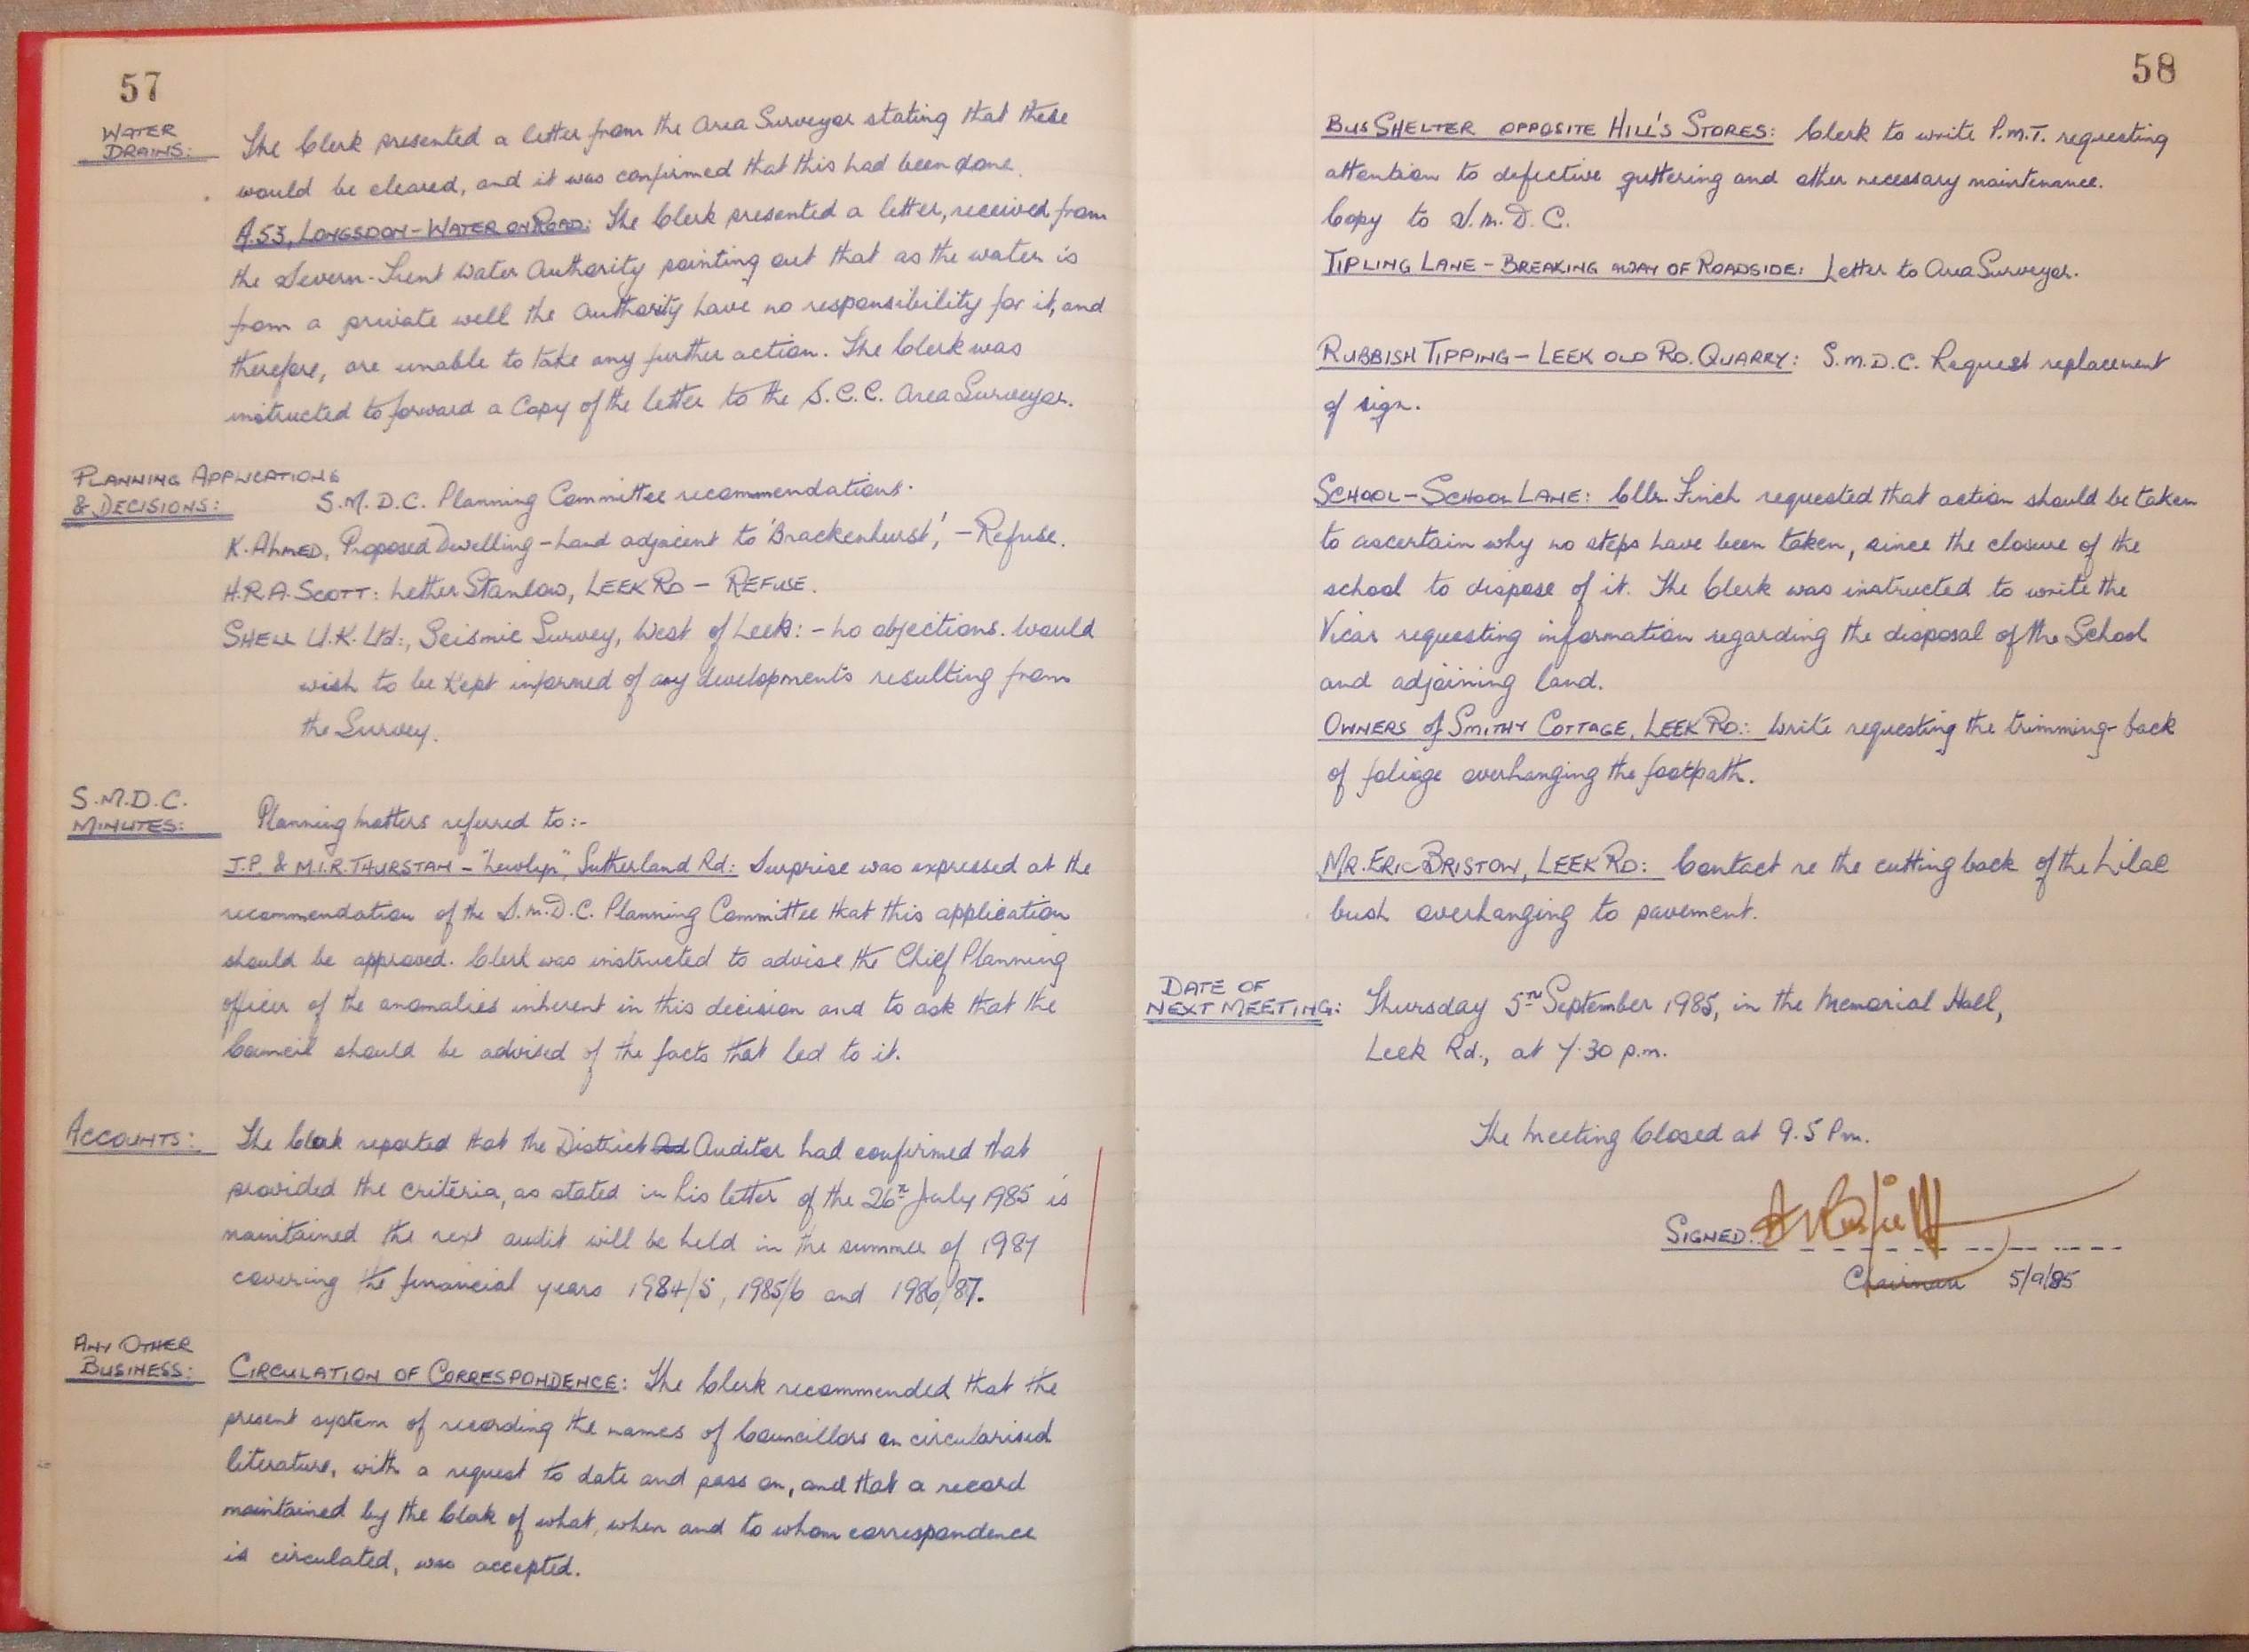 57
WATER
DRAINS:
The Clerk presented a letter from the Area Surveyor stating that these
would be cleared, and it was confirmed that this had been done.
A.53, LONGSDON - WATER ON ROAD: The Clerk presented a letter, received from
the Severn-Trent Water Authority pointing out that as the water is
from a private well the Authority have no responsibility for it, and
therefore, are unable to take any further action. The Clerk was
instructed to forward a Copy of the letter to the S.C.C. Area Surveyor.
PLANNING APPLICATIONS
& DECISIONS:
S.M.D.C. Planning Committee recommendations.
K. AHMED, Proposed Dwelling - Land adjacent to 'Brackenhurst', - Refuse.
H.R.A. SCOTT: Lether Stanlow, LEEK RD - REFUSE.
SHELL U.K. Ltd:, Seismic Survey, West of Leek: - No objections. Would
wish to be kept informed of any developments resulting from
the Survey.
S.M.D.C.
MINUTES:
Planning matters referred to:-
J.P. & M.I.R. THURSTAN - "Newlyn", Sutherland Rd: Surprise was expressed at the
recommendation of the S.M.D.C. Planning Committee that this application
should be approved. Clerk was instructed to advise the Chief Planning
officer of the anomalies inherent in this decision and to ask that the
Council should be advised of the facts that led to it.
ACCOUNTS:
The Clerk reported that the District Ad Auditor had confirmed that
provided the criteria, as stated in his letter of the 26th July 1985 is
maintained the next audit will be held in the summer of 1987
covering the financial years 1984/5, 1985/6 and 1986/87.
ANY OTHER
BUSINESS:
CIRCULATION OF CORRESPONDENCE: The Clerk recommended that the
present system of recording the names of Councillors on circularised
literature, with a request to date and pass on, and that a record
maintained by the Clerk of what, when and to whom correspondence
is circulated, was accepted.
58
BUS SHELTER OPPOSITE HILL'S STORES: Clerk to write P.M.T. requesting
attention to defective guttering and other necessary maintenance.
Copy to S.M.D.C.
TIPLING LANE - BREAKING AWAY OF ROADSIDE: Letter to Area Surveyor.
RUBBISH TIPPING - LEEK OLD RD. QUARRY: S.M.D.C. Request replacement
of sign.
SCHOOL - SCHOOL LANE: Cllr. Finch requested that action should be taken
to ascertain why no steps have been taken, since the closure of the
school to dispose of it. The Clerk was instructed to write the
Vicar requesting information regarding the disposal of the School
and adjoining land.
OWNERS of SMITHY COTTAGE, LEEK RD.: Write requesting the trimming-back
of foliage overhanging the footpath.
MR. ERIC BRISTOW, LEEK RD: Contact re the cutting back of the Lilac
bush overhanging to pavement.
DATE OF
NEXT MEETING:
Thursday 5th September 1985, in the Memorial Hall,
Leek Rd., at 7.30 p.m.
The Meeting Closed at 9.5 P.m.
SIGNED:
Chairman 5/9/85